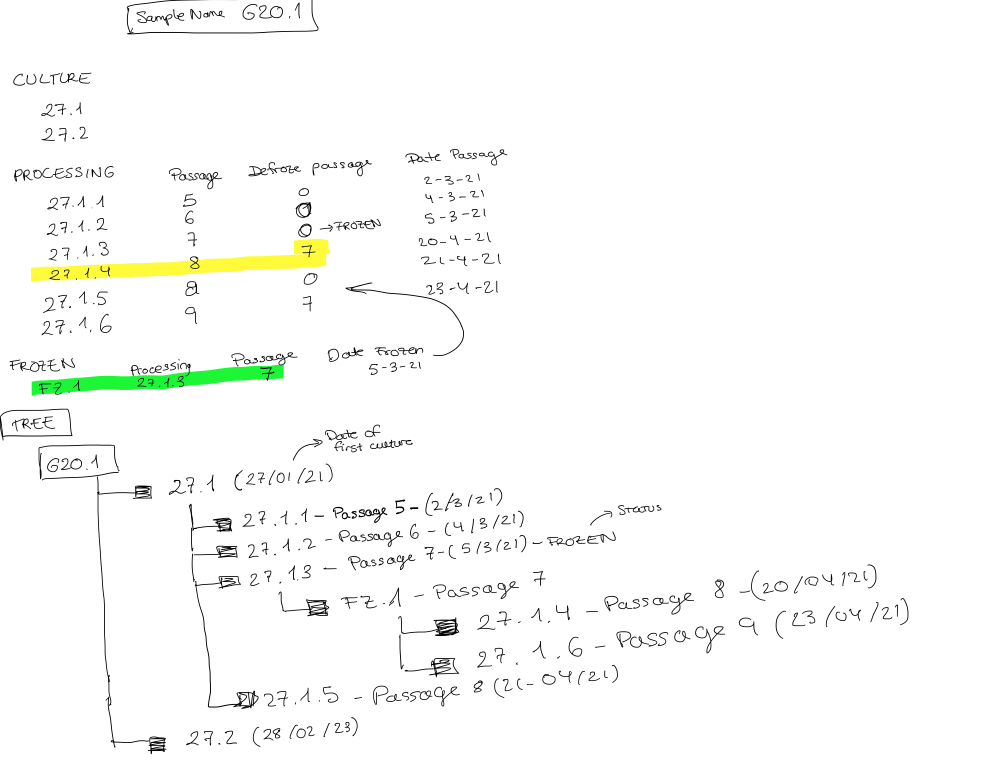 Sample Name G20.1
CULTURE
27.1
27.2
PROCESSING Passage Defroze passage Date Passage
27.1.1 5 0 2-3-21
27.1.2 6 0 4-3-21
27.1.3 7 0 → FROZEN 5-3-21
27.1.4 8 7 20-4-21
27.1.5 8 0 21-4-21
27.1.6 9 7 23-4-21
FROZEN Processing Passage Date Frozen
FZ.1 27.1.3 7 5-3-21
TREE
G20.1
Date of
first culture
27.1 (27/01/21)
27.1.1 - Passage 5 - (2/3/21)
27.1.2 - Passage 6 - (4/3/21)
Status
27.1.3 - Passage 7 - (5/3/21) - FROZEN
FZ.1 - Passage 7
27.1.4 - Passage 8 - (20/04/21)
27.1.6 - Passage 9 (23/04/21)
27.1.5 - Passage 8 (21-04/21)
27.2 (28/02/23)